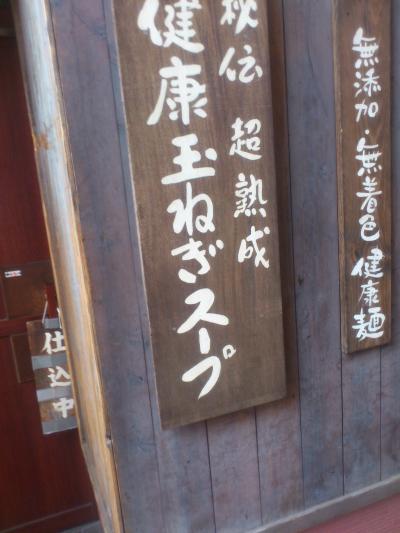 無添加・無着色 健康麺
秘伝 超熟成
健康玉ねぎスープ
仕込中